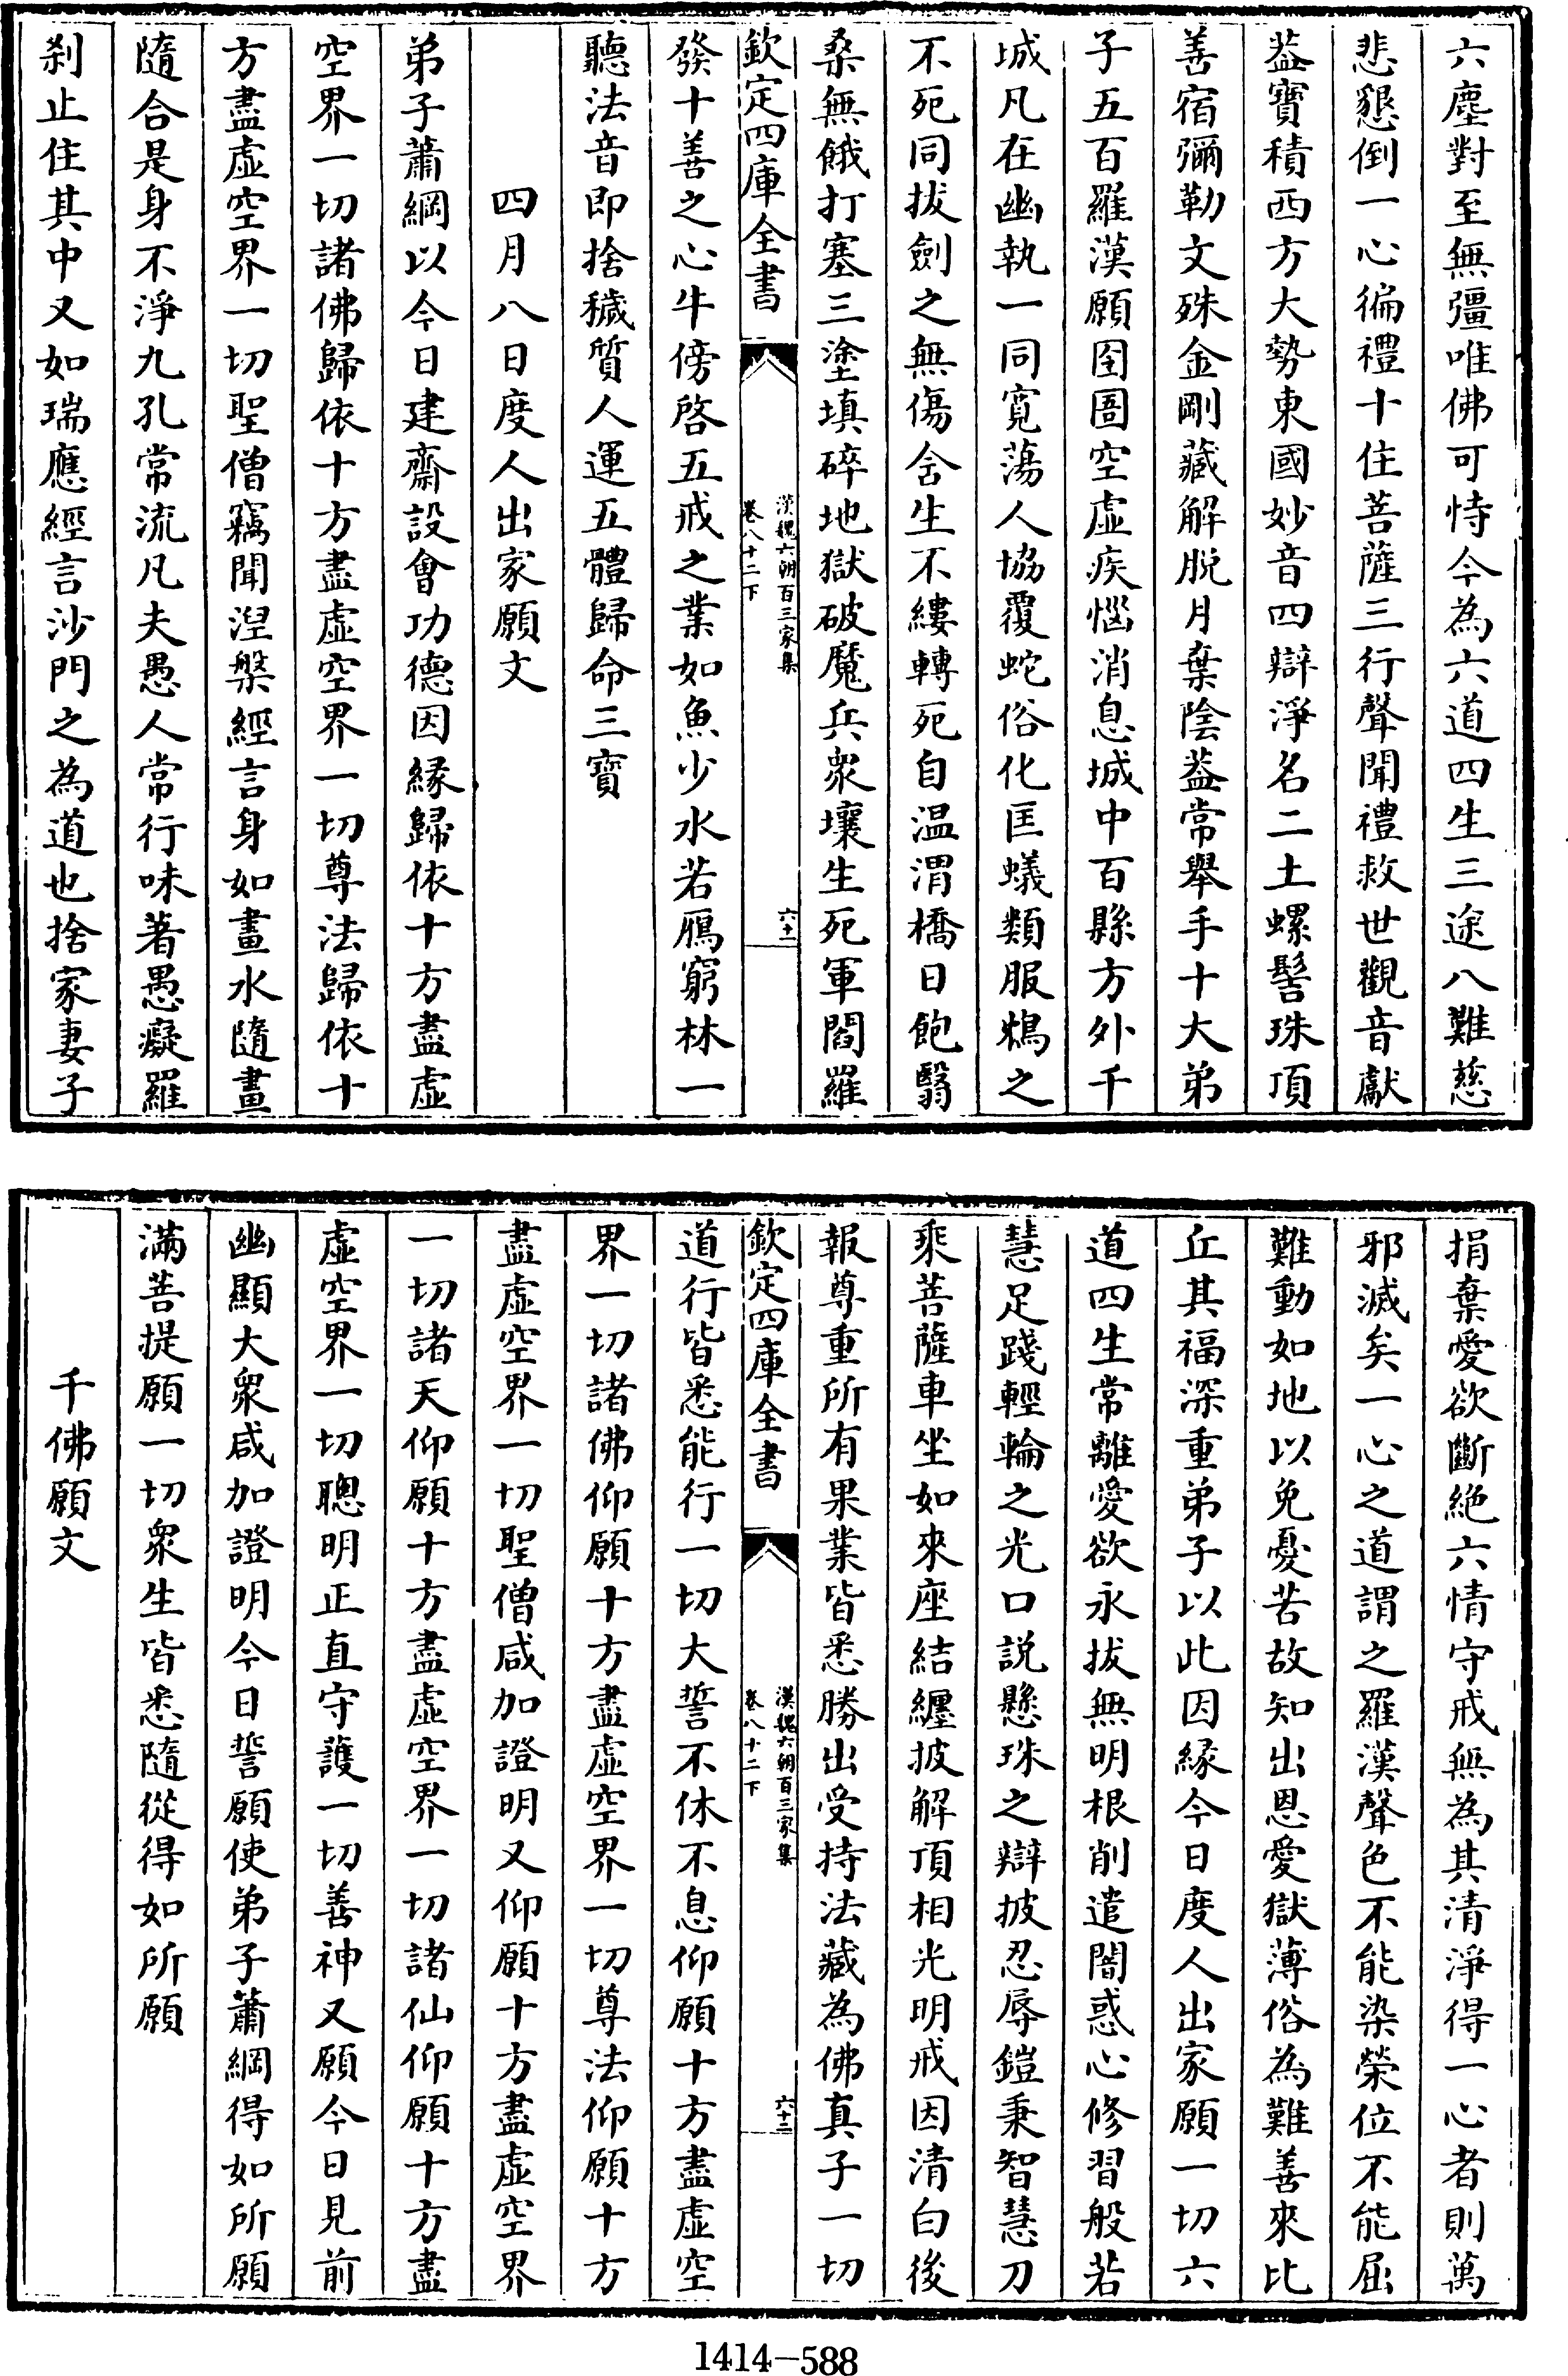 六塵對至無彊唯佛可恃今為六道四生三途八難慈
悲懇倒一心徧禮十住菩薩三行聲聞禮救世觀音獻
葢寳積西方大勢東國妙音四辯淨名二土螺髻珠頂
善宿彌勒文殊金剛藏解脱月棄陰葢常舉手十大弟
子五百羅漢願囹圄空虛疾惱消息城中百縣方外千
城凡在幽執一同寛蕩人協覆蛇俗化匡蟻類服鴆之
不死同拔劍之無傷含生不縷轉死自温渭橋日飽翳
桑無餓打塞三塗填碎地獄破魔兵衆壤生死軍閻羅
欽定四庫全書
漢魏六朝百三家集
卷八十二下
六十一
發十善之心牛傍啓五戒之業如魚少水若鴈窮林一
聽法音即捨穢質人運五體歸命三寳
四月八日度人出家願文
弟子蕭綱以今日建齋設會功德因縁歸依十方盡虛
空界一切諸佛歸依十方盡虛空界一切尊法歸依十
方盡虛空界一切聖僧竊聞湼槃經言身如畫水隨畫
隨合是身不淨九孔常流凡夫愚人常行味著愚癡羅
刹止住其中又如瑞應經言沙門之為道也捨家妻子
捐棄愛欲斷絶六情守戒無為其清淨得一心者則萬
邪滅矣一心之道謂之羅漢聲色不能染榮位不能屈
難動如地以免憂苦故知出恩愛獄薄俗為難善來比
丘其福深重弟子以此因縁今日度人出家願一切六
道四生常離愛欲永拔無明根削遣闇惑心修習般若
慧足踐輕輪之光口説懸珠之辯披忍辱鎧秉智慧刀
乘菩薩車坐如來座結纒披解頂相光明戒因清白後
報尊重所有果業皆悉勝出受持法藏為佛真子一切
欽定四庫全書
漢魏六朝百三家集
卷八十二下
六十二
道行皆悉能行一切大誓不休不息仰願十方盡虛空
界一切諸佛仰願十方盡虛空界一切尊法仰願十方
盡虛空界一切聖僧咸加證明又仰願十方盡虛空界
一切諸天仰願十方盡虛空界一切諸仙仰願十方盡
虛空界一切聰明正直守護一切善神又願今日見前
幽顯大衆咸加證明今日誓願使弟子蕭綱得如所願
滿菩提願一切衆生皆悉隨從得如所願
千佛願文
1414-588